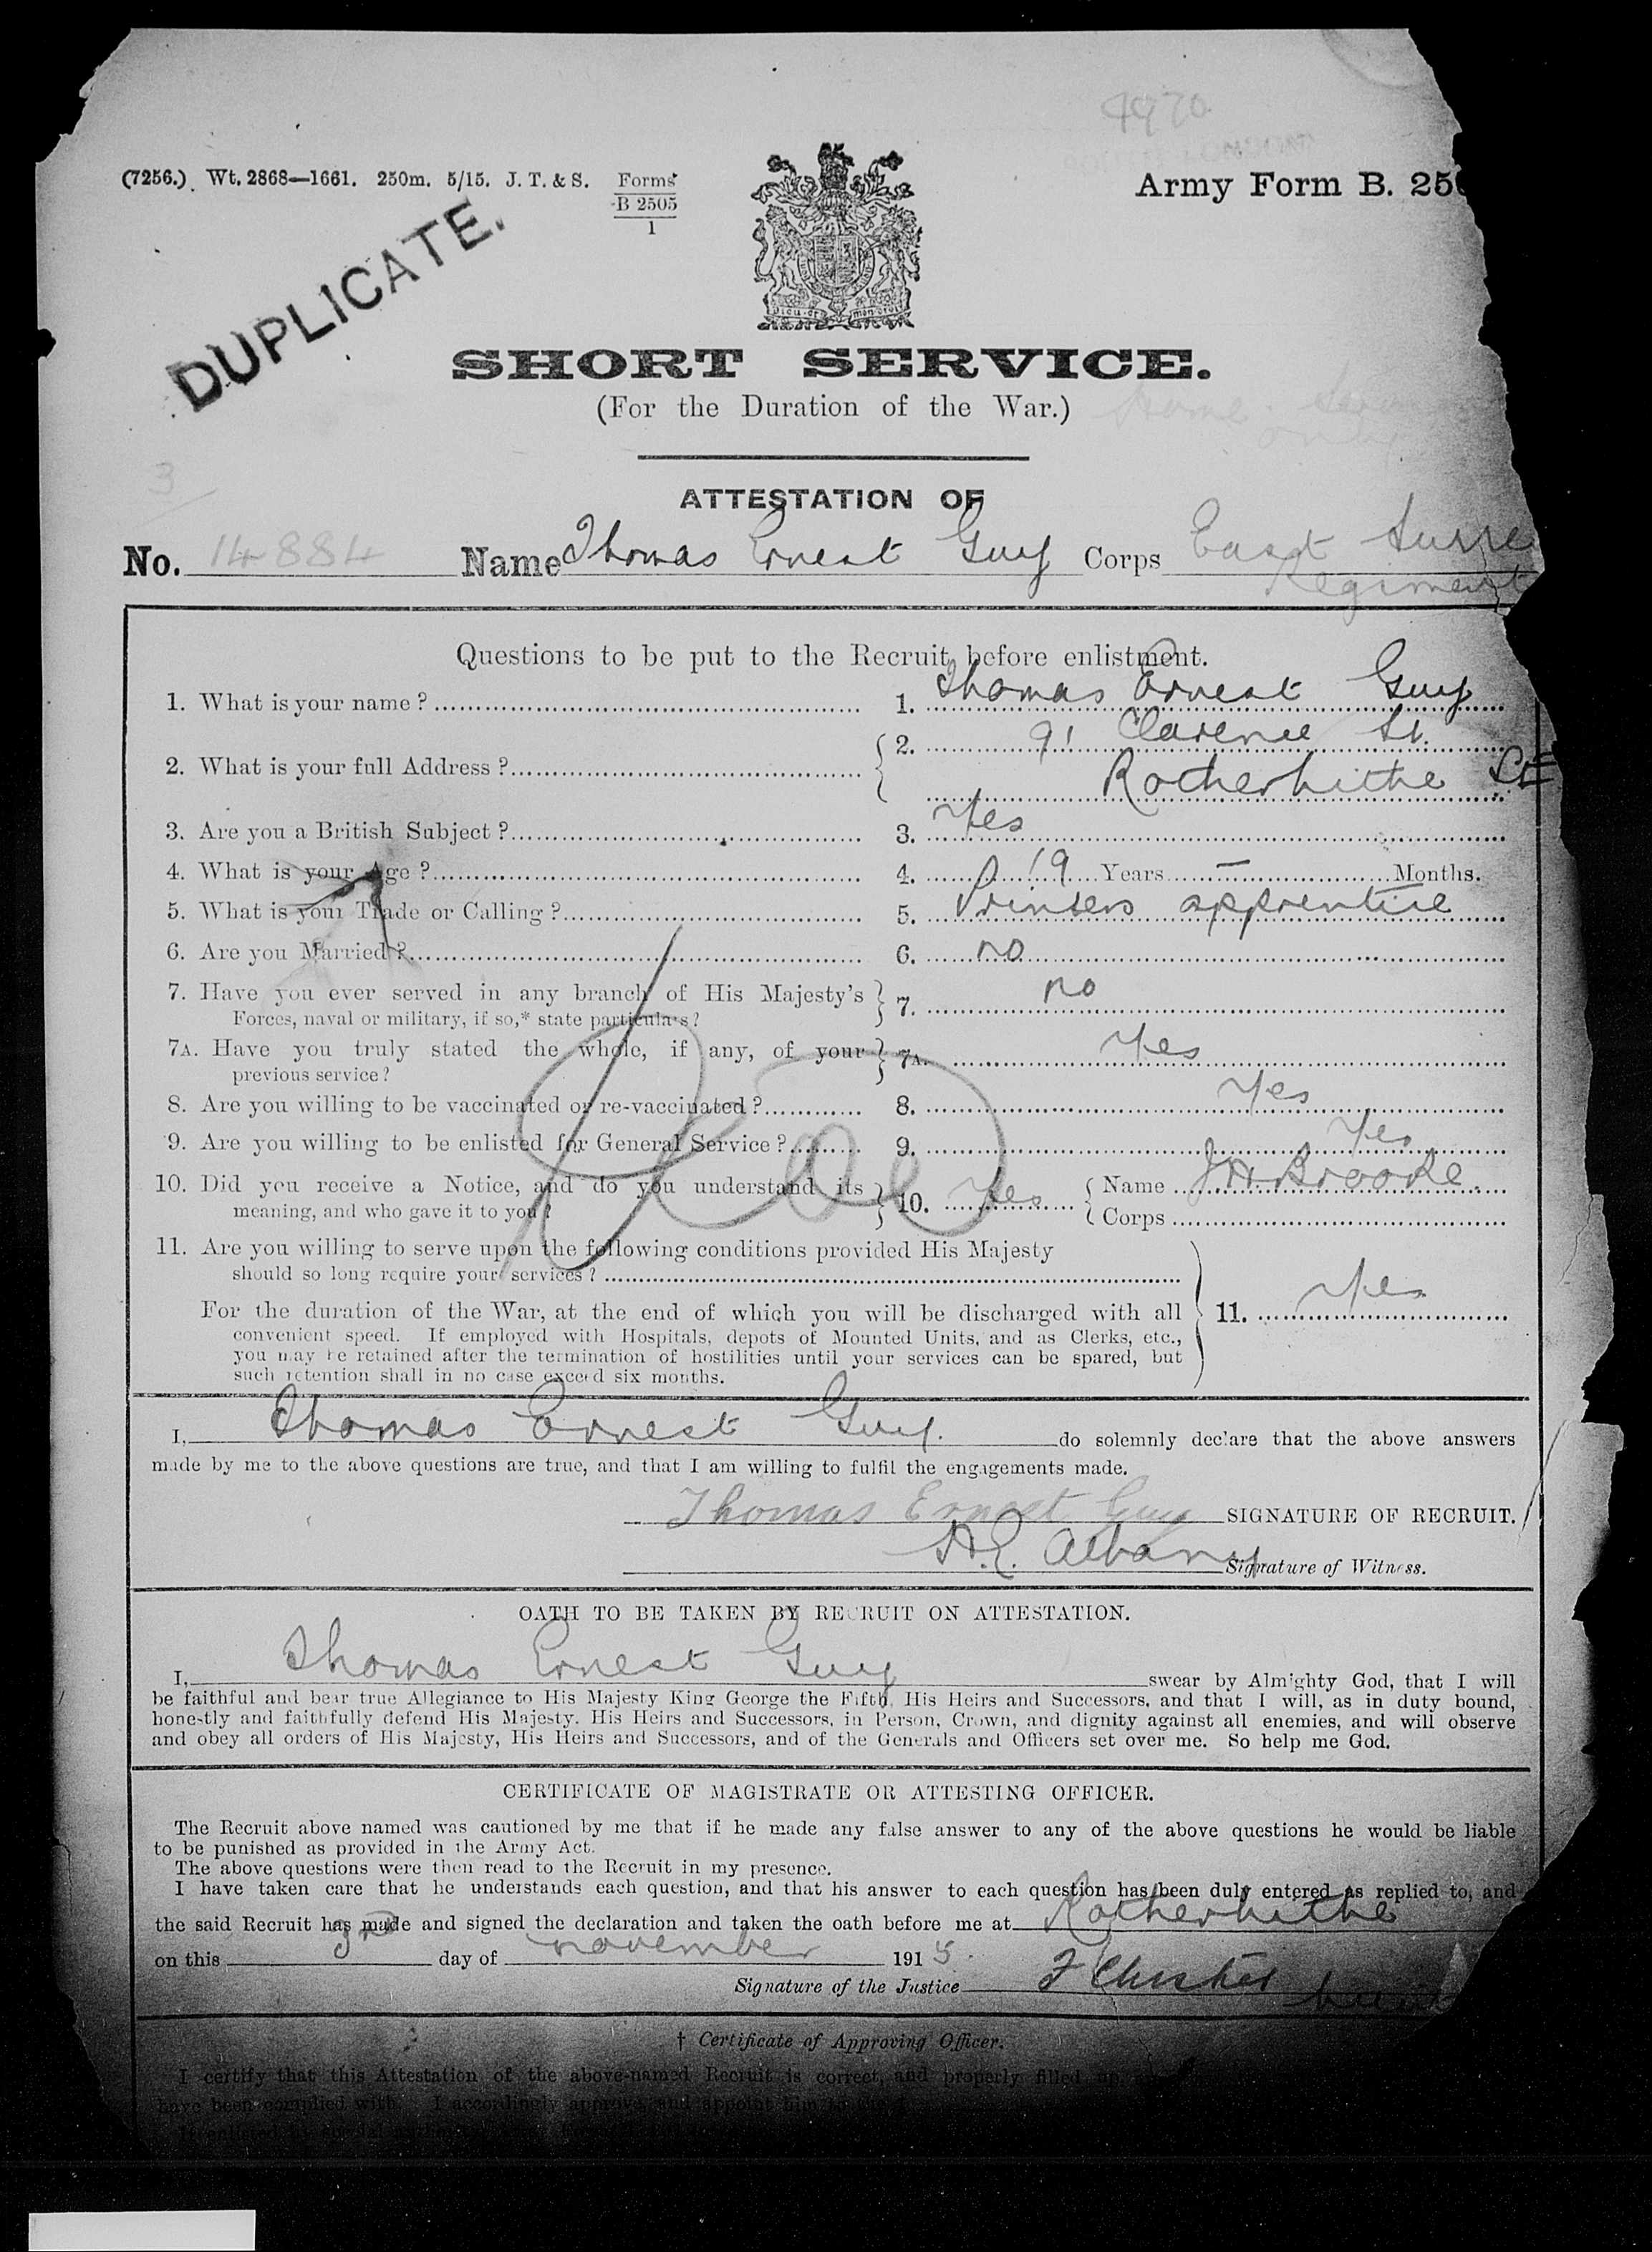 4970
(7256.) Wt. 2868—1661. 250m. 5/15. J. T. & S. Forms
B 2505
1
Army Form B. 250
DUPLICATE.
Dieu et mon droit
SHORT SERVICE.
(For the Duration of the War.)
Home
only
3
ATTESTATION OF
No. 14884 Name Thomas Ernest Guy Corps East Surre
Regiment
Questions to be put to the Recruit before enlistment.
1. What is your name? 1. Thomas Ernest Guy
2. What is your full Address? 2. 91 Clarence St.
Rotherhithe SE
3. Are you a British Subject? 3. Yes
4. What is your Age? 4. 19 Years — Months.
5. What is your Trade or Calling? 5. Printers apprentice
6. Are you Married? 6. no
7. Have you ever served in any branch of His Majesty's 7. no
Forces, naval or military, if so,* state particulars?
7A. Have you truly stated the whole, if any, of your 7A. Yes
previous service?
8. Are you willing to be vaccinated or re-vaccinated? 8. Yes
9. Are you willing to be enlisted for General Service? 9. Yes
10. Did you receive a Notice, and do you understand its 10. Yes Name J H Brooke.
meaning, and who gave it to you? Corps
11. Are you willing to serve upon the following conditions provided His Majesty
should so long require your services?
For the duration of the War, at the end of which you will be discharged with all 11. Yes
convenient speed. If employed with Hospitals, depots of Mounted Units, and as Clerks, etc.,
you may be retained after the termination of hostilities until your services can be spared, but
such retention shall in no case exceed six months.
I, Thomas Ernest Guy. do solemnly declare that the above answers
made by me to the above questions are true, and that I am willing to fulfil the engagements made.
Thomas Ernest Guy SIGNATURE OF RECRUIT.
H.E. Albany Signature of Witness.
OATH TO BE TAKEN BY RECRUIT ON ATTESTATION.
I, Thomas Ernest Guy swear by Almighty God, that I will
be faithful and bear true Allegiance to His Majesty King George the Fifth, His Heirs and Successors, and that I will, as in duty bound,
honestly and faithfully defend His Majesty, His Heirs and Successors, in Person, Crown, and dignity against all enemies, and will observe
and obey all orders of His Majesty, His Heirs and Successors, and of the Generals and Officers set over me. So help me God.
CERTIFICATE OF MAGISTRATE OR ATTESTING OFFICER.
The Recruit above named was cautioned by me that if he made any false answer to any of the above questions he would be liable
to be punished as provided in the Army Act.
The above questions were then read to the Recruit in my presence.
I have taken care that he understands each question, and that his answer to each question has been duly entered as replied to, and
the said Recruit has made and signed the declaration and taken the oath before me at Rotherhithe
on this 3rd day of november 1915.
Signature of the Justice F Chester
† Certificate of Approving Officer.
I certify that this Attestation of the above-named Recruit is correct, and properly filled up,
have been complied with. I accordingly approve, and appoint him to the
If enlisted by special